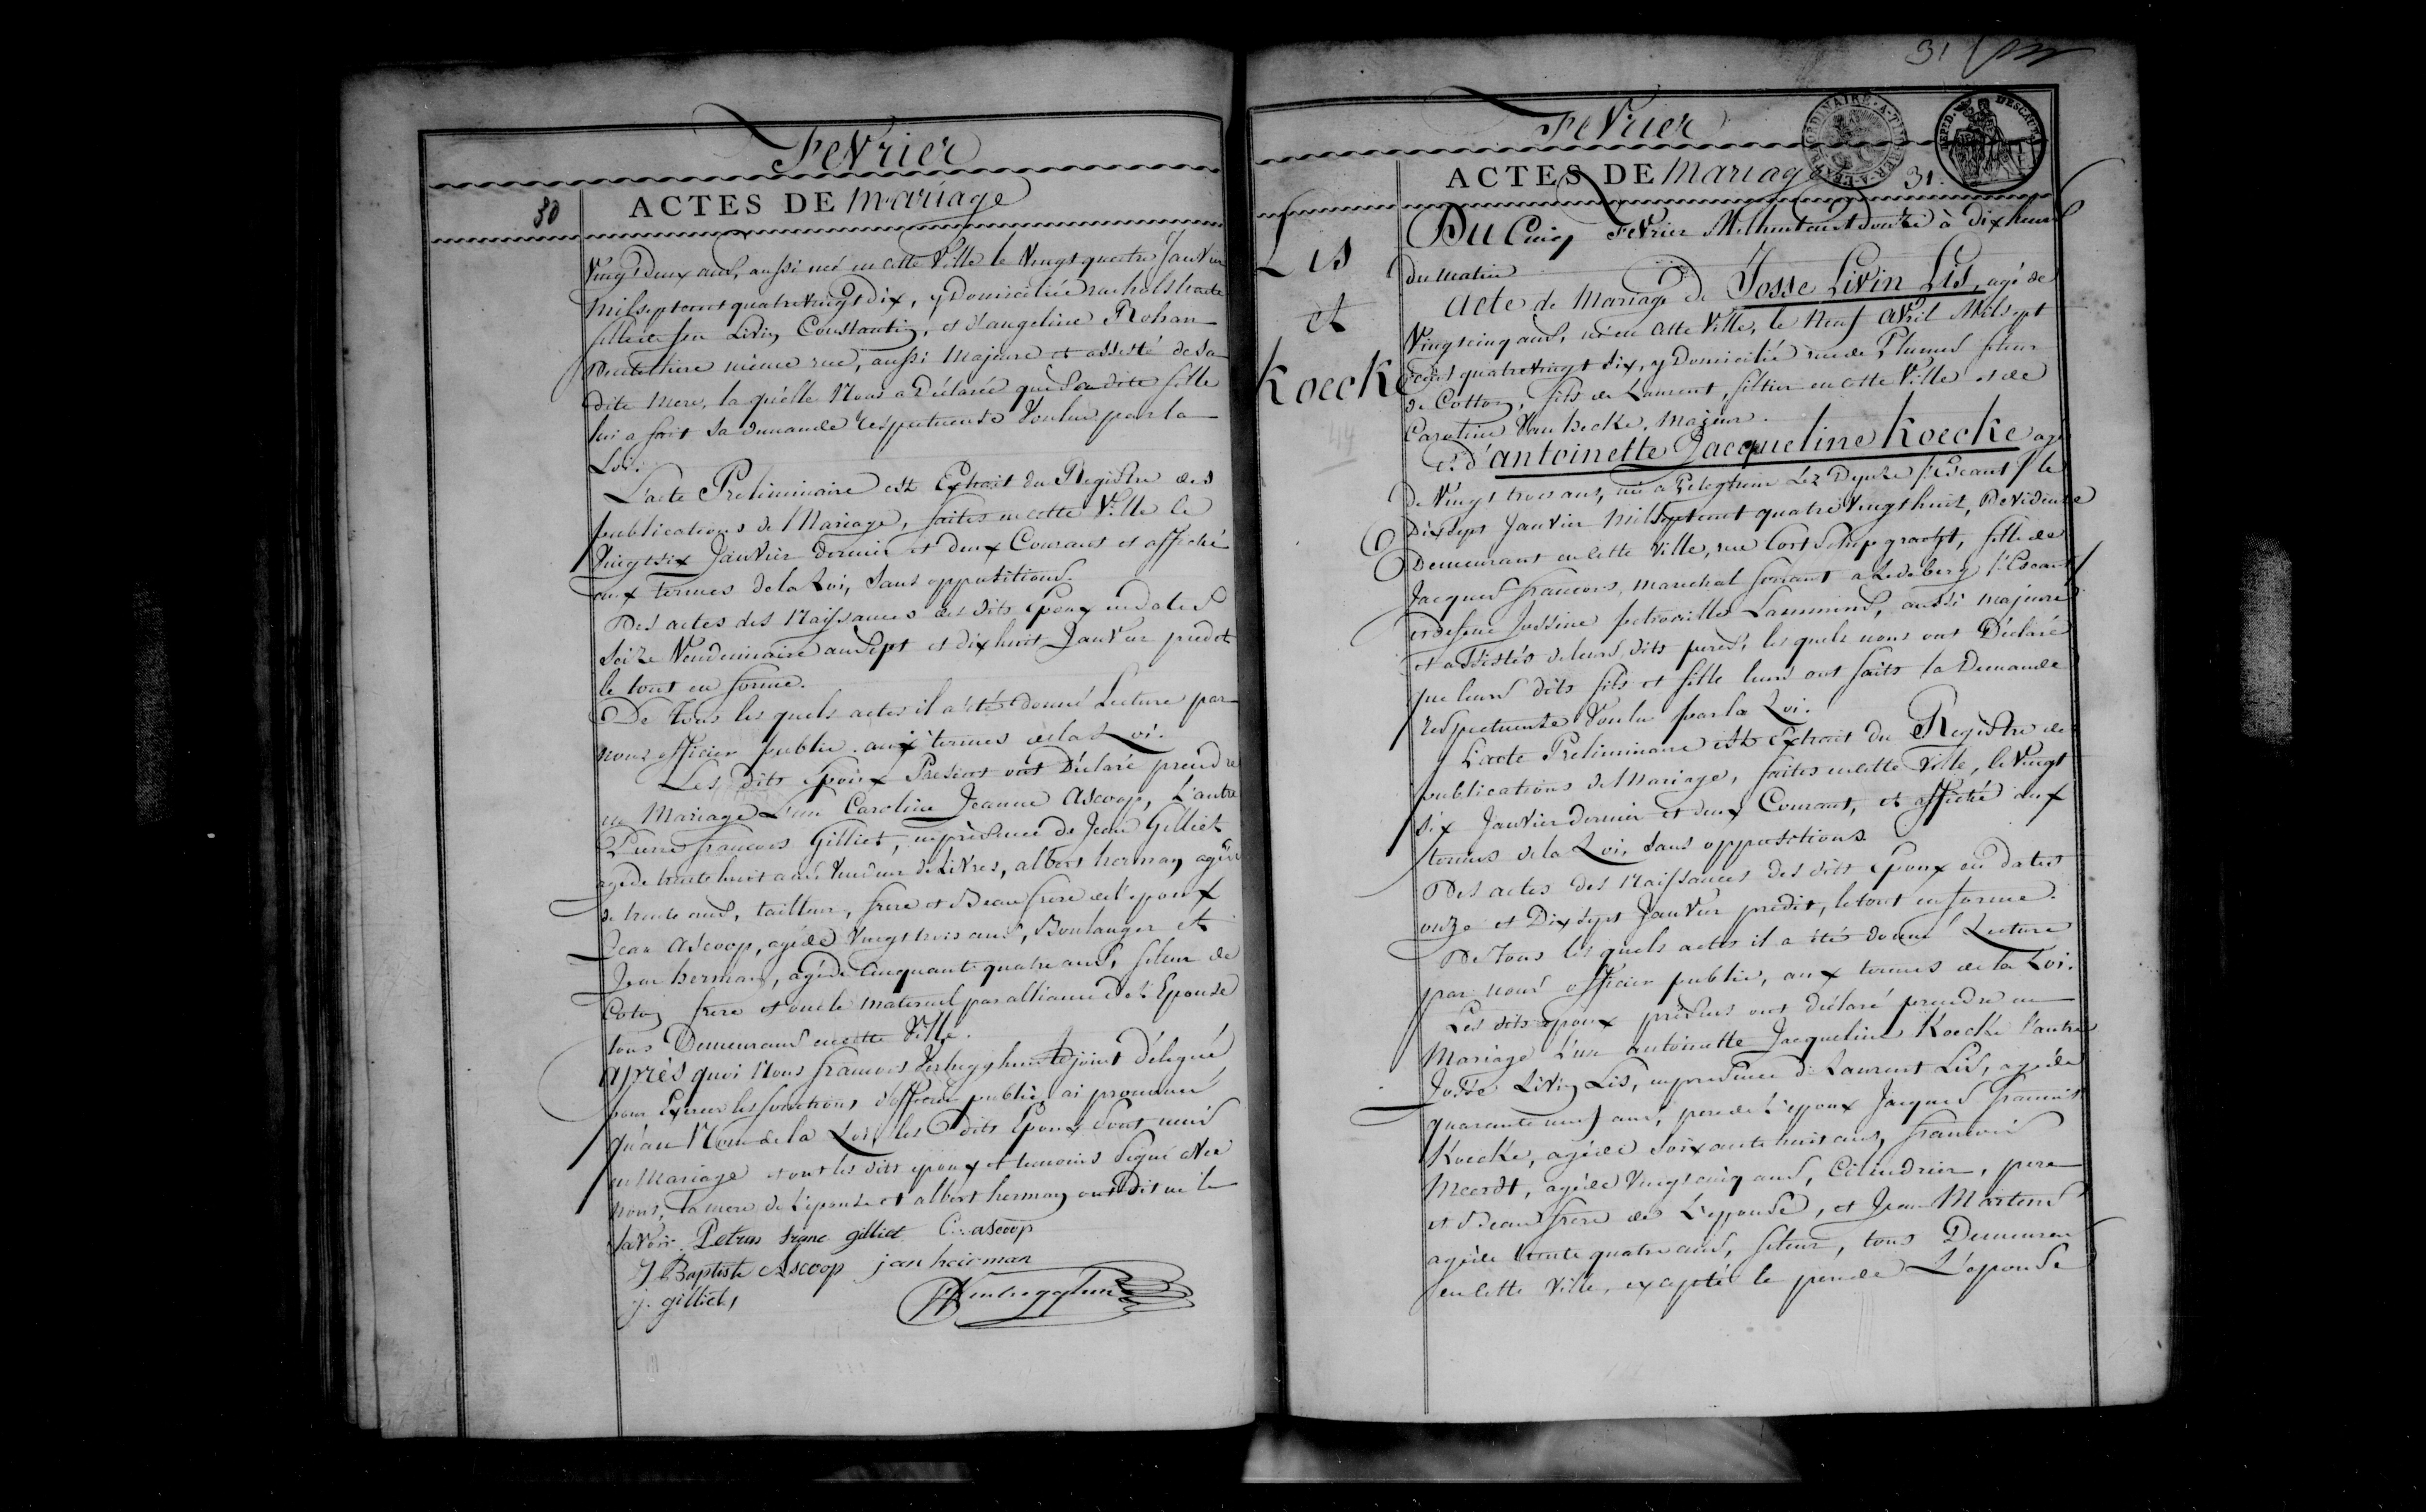 Fevrier
30
ACTES DE Mariage
Vingt deux ans, aussi née en cette Ville le Vingt quatre Janvier
Mil sept cent quatre vingt dix, y Domiciliée rue
fille de feu Livin Constantin, et d'angeline Rohan
même rue, aussi Majeure et assisté de sa
dite Mere, la quelle Nous a Déclaré que Sa dite fille
lui a fait sa demande respectueuse Voulue par la
Loi.
L'acte Preliminaire est Extrait du Registre des
publications de Mariage, faites en cette Ville le
Vingt six Janvier dernier et deux Courant et affiché
aux termes de la Loi, Sans oppositions.
Des actes des Naissances des dits Epoux en dates
Seize Vendemiaire an Sept et dix huit Janvier predit
le tout en forme.
De Tous les quels actes il a été donné Lecture par
nous officier public aux termes de la Loi.
Les dits Epoux Presens ont Déclaré prendre
en Mariage L'un Caroline Jeanne Ascoop, L'autre
Pierre francois Gilliet, en présence de Jean Gilliet
agé de trente huit ans Vendeur de Livres, albert herman, agé
de trente ans, tailleur, frere et Beau frere de l'epoux
Jean Ascoop, agé de Vingt trois ans, Boulanger et
Jean herman, agé de Cinquante quatre ans, fileur de
Coton frere et oncle maternel par alliance de l'Epouse
tous Demeurans en cette Ville.
après quoi Nous francois Verhegghen adjoint délegué
pour Exercer les fonctions d'officier public, ai prononcé
qu'au Nom de la Loi, les dits Epoux Sont unis
en Mariage et ont les dits epoux et temoins Signé avec
nous, la mere de l'epouse et albert herman ont Dit ne le
savoir. Petrus franc gilliet C: ascoop
J Baptiste Ascoop jan heirman
j. gilliet,
31
Fevrier
ACTES DE Mariage
31.
DEPT D. L'ESCAUT
Lis
et
Koecke
44
Du Cinq Fevrier Mil huit cent douze à Dix heures
du Matin
Acte de Mariage de Josse Livin Lis, agé de
Vingt cinq ans, né en cette Ville, le Neuf Avril Mil sept
cent quatre vingt Six, y Domicilié rue de Plumes fileur
de Cotton, fils de Laurent, filtier en cette Ville et de
Caroline Van hecke, Majeur.
et d'antoinette Jacqueline Koecke agé
de Vingt trois ans, né a Lez Deynze /:Escaut:/ le
Dix Sept Janvier Mil Sept cent quatre Vingt huit,
Demeurant en cette Ville, rue Cort gracht, fille de
Jacques francois, marechal ferrant a Ledeberg /:Escaut:/
et de feue Jossine petronille Lammens, aussi majeure
et assistés de leurs dits peres, les quels nous ont Déclaré
que leurs dits fils et fille leurs ont faits la Demande
respectueuse Voulu par la Loi.
L'acte Preliminaire est Extrait du Registre des
publications de Mariage, faites en cette Ville, le Vingt
six Janvier dernier et deux Courant, et affiché aux
termes de la Loi, Sans oppositions.
Des actes des Naissances des dits Epoux en dates
onze et Dix Sept Janvier predit, le tout en forme.
De Tous les quels actes il a été donné Lecture
par nous officier public, aux termes de la Loi.
Les dits epoux présens ont déclaré prendre en
Mariage L'un antoinette Jacqueline Koecke l'autre
Josse Livin Lis, en presence de Laurent Lis, agé de
quarante neuf ans, pere de L'epoux Jacques francois
Koecke, agé de Soixante huit ans, francois
Meerdt, agé de Vingt cinq ans, Cilindrier, pere
et Beau frere de L'epouse, et Jean Martens
agé de trente quatre ans, fileur, tous Demeurans
en cette Ville, excepté le pere de L'epouse